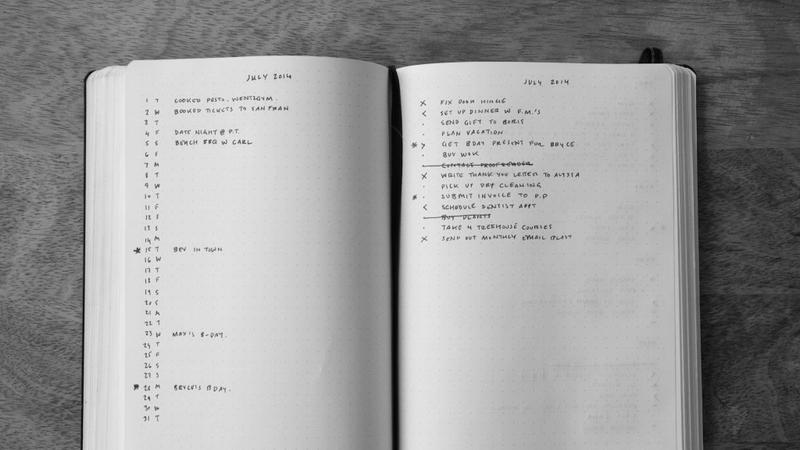 JULY 2014
1 T COOKED PESTO. WENT 2 GYM.
2 W BOOKED TICKETS TO SAN FRAN
3 T
4 F DATE NIGHT @ P.T.
5 S BEACH BBQ W CARL
6 S
7 M
8 T
9 W
10 T
11 F
12 S
13 S
14 M
* 15 T BEV IN TOWN
16 W
17 T
18 F
19 S
20 S
21 M
22 T
23 W MAX'S B-DAY.
24 T
25 F
26 S
27 S
* 28 M BRYCE'S BDAY.
29 T
30 W
31 T
JULY 2014
X FIX DOOR HINGE
< SET UP DINNER W F.M.'S
· SEND GIFT TO BORIS
· PLAN VACATION
* > GET BDAY PRESENT FOR BRYCE
· BUY WOK
· CONTACT PROOFREADER
X WRITE THANK YOU LETTER TO ALYSSA
· PICK UP DRY CLEANING
* · SUBMIT INVOICE TO P.P
< SCHEDULE DENTIST APPT
· BUY PLANTS
· TAKE 4 TREEHOUSE COURSES
X SEND OUT MONTHLY EMAIL BLAST